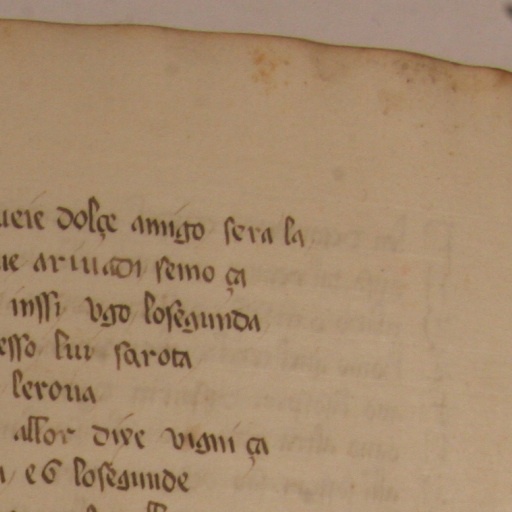 ueie dolçe amigo sera la
ue ariuadi semo ça
inssi vgo losegunda
esso lui sarota
leroua
allor dire vigni ça
losegunde